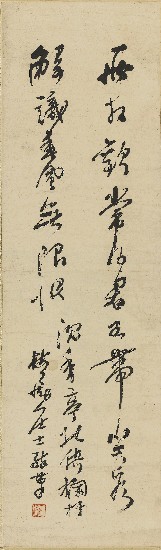 兩相歡常得君王帶笑看
解識春風無限恨
沉香亭北倚欄杆
居士